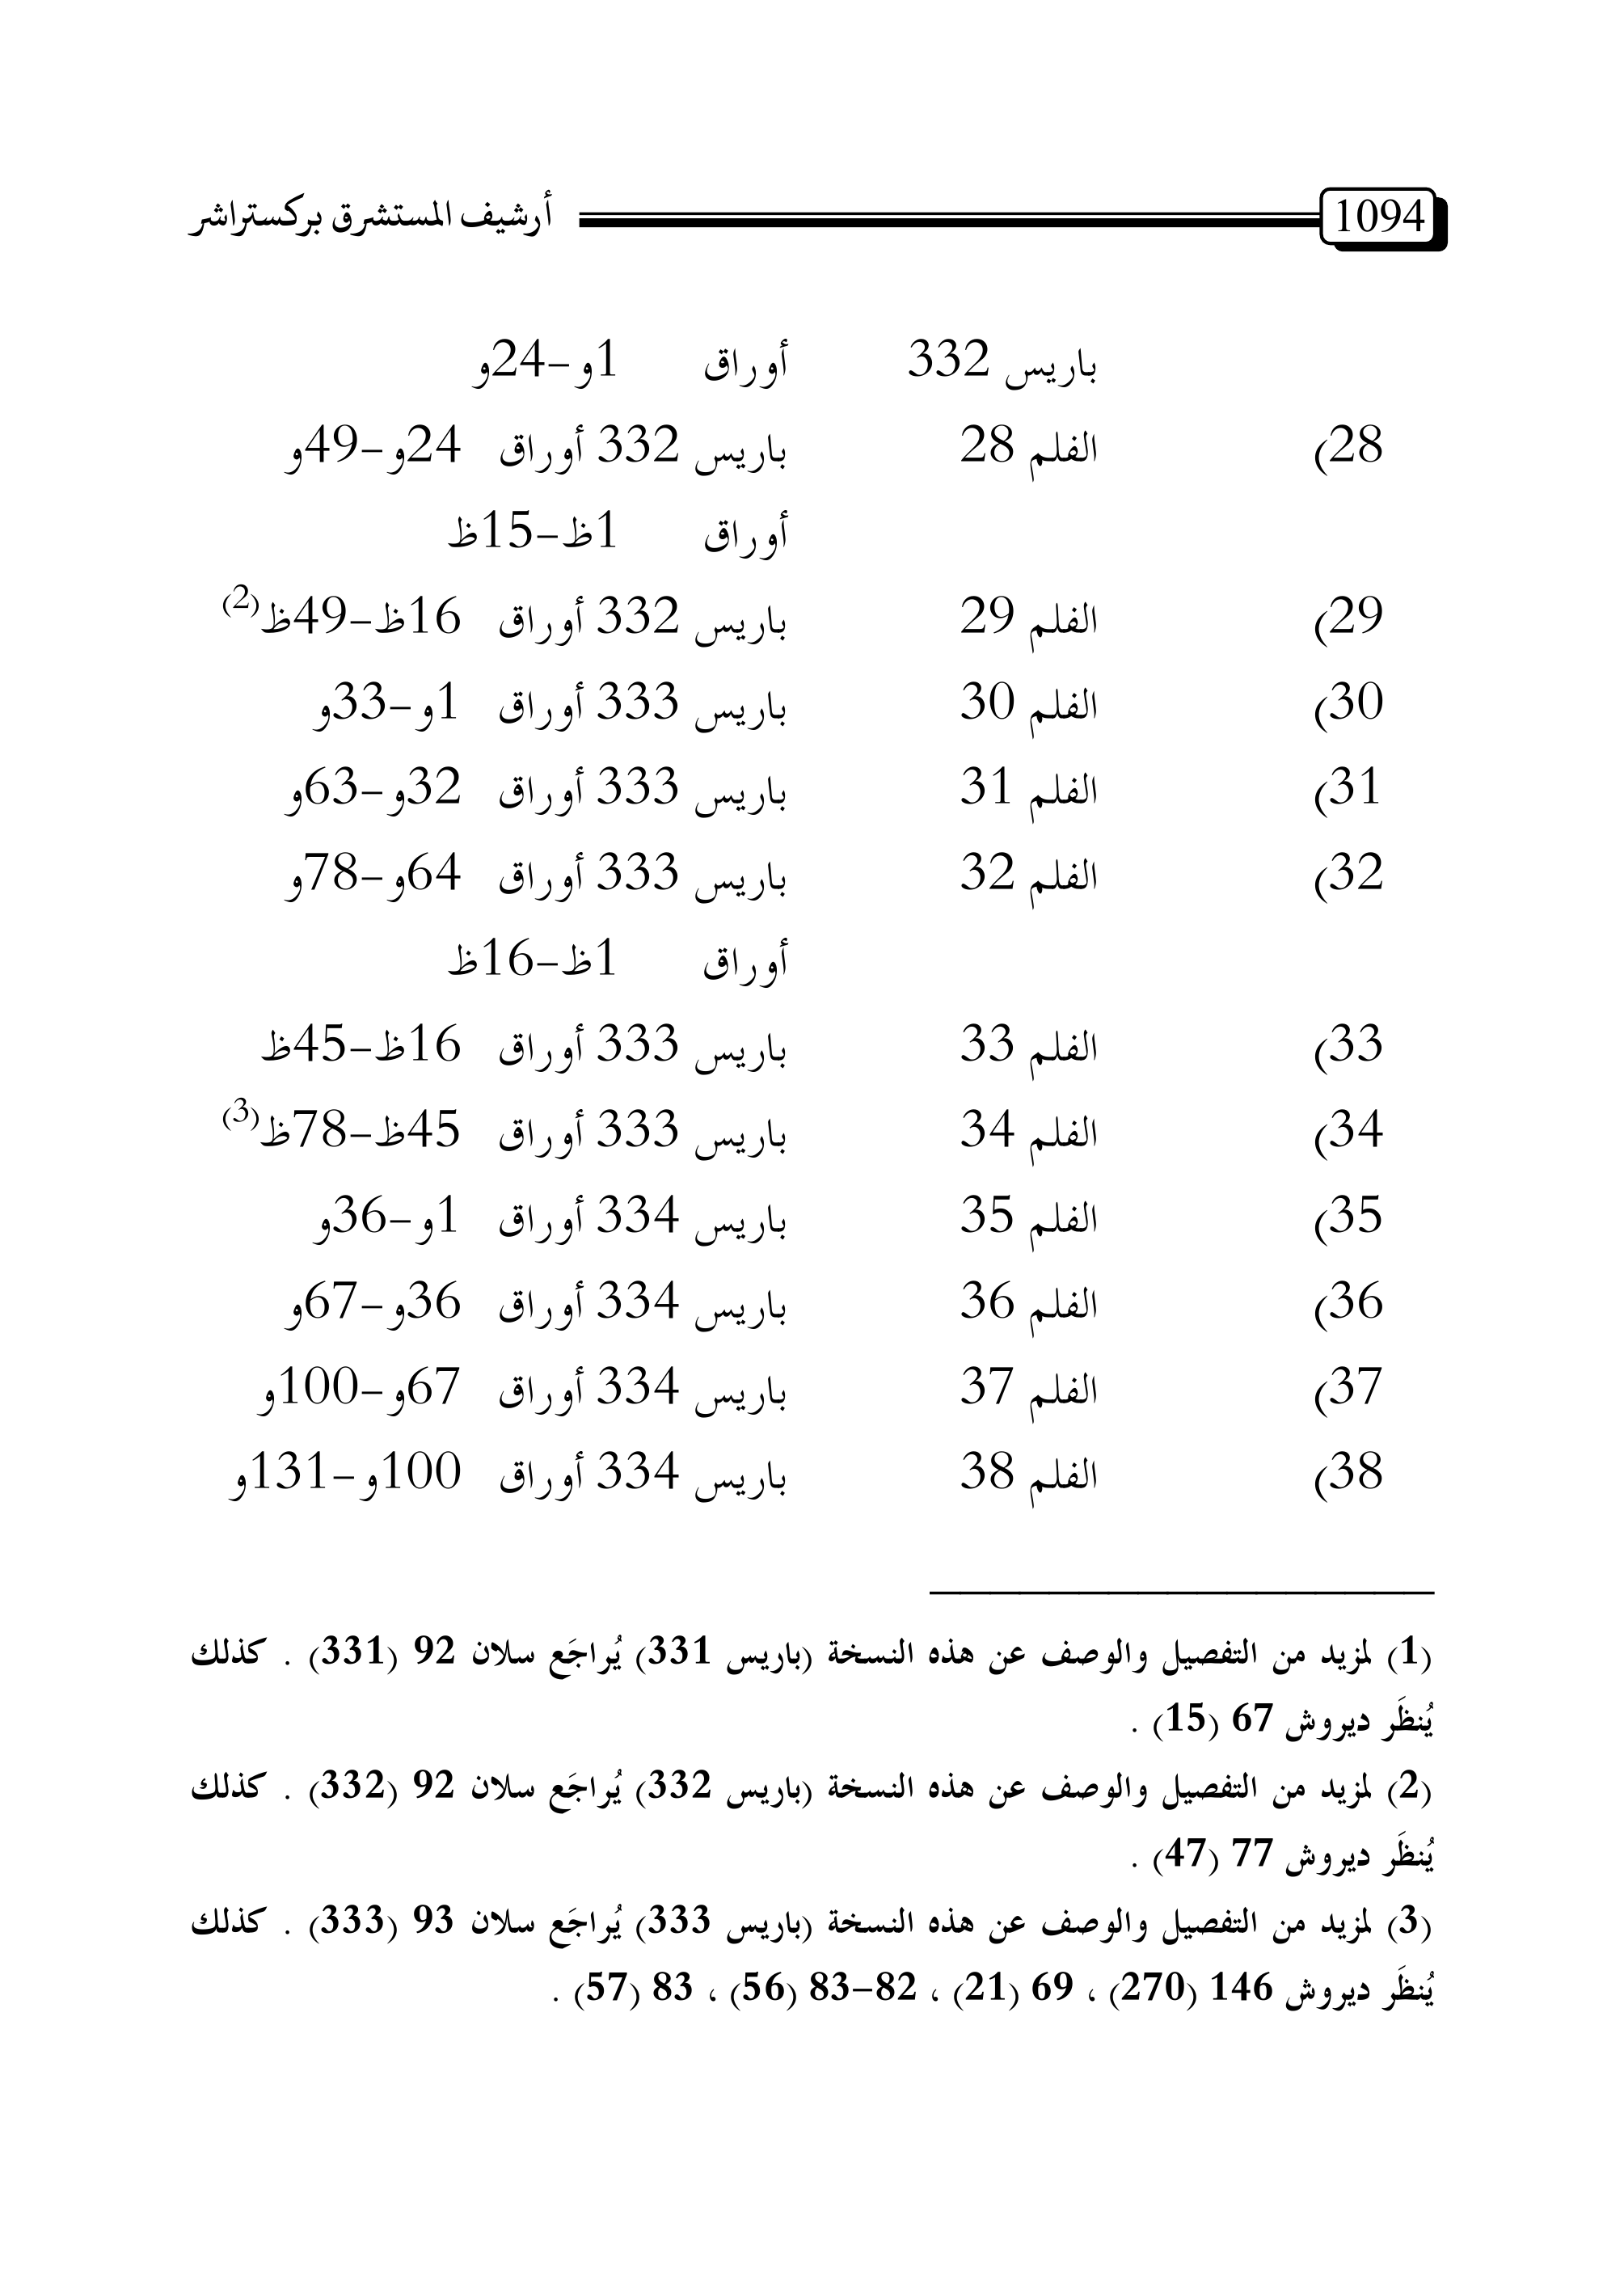 1094 أرشيف المستشرق بركستراشر
باريس 332 أوراق 1و-24و
28) الفلم 28 باريس 332 أوراق 24و-49و
أوراق 1ظ-15ظ
29) الفلم 29 باريس 332 أوراق 16ظ-49ظ(2)
30) الفلم 30 باريس 333 أوراق 1و-33و
31) الفلم 31 باريس 333 أوراق 32و-63و
32) الفلم 32 باريس 333 أوراق 64و-78و
أوراق 1ظ-16ظ
33) الفلم 33 باريس 333 أوراق 16ظ-45ظ
34) الفلم 34 باريس 333 أوراق 45ظ-78ظ(3)
35) الفلم 35 باريس 334 أوراق 1و-36و
36) الفلم 36 باريس 334 أوراق 36و-67و
37) الفلم 37 باريس 334 أوراق 67و-100و
38) الفلم 38 باريس 334 أوراق 100و-131و
(1) لمزيد من التفصيل والوصف عن هذه النسخة (باريس 331) يُراجَع سلان 92 (331) . كذلك
يُنظَر ديروش 67 (15) .
(2) لمزيد من التفصيل والوصف عن هذه النسخة (باريس 332) يُراجَع سلان 92 (332) . كذلك
يُنظَر ديروش 77 (47) .
(3) لمزيد من التفصيل والوصف عن هذه النسخة (باريس 333) يُراجَع سلان 93 (333) . كذلك
يُنظَر ديروش 146 (270) ، 69 (21) ، 82-83 (56) ، 83 (57) .